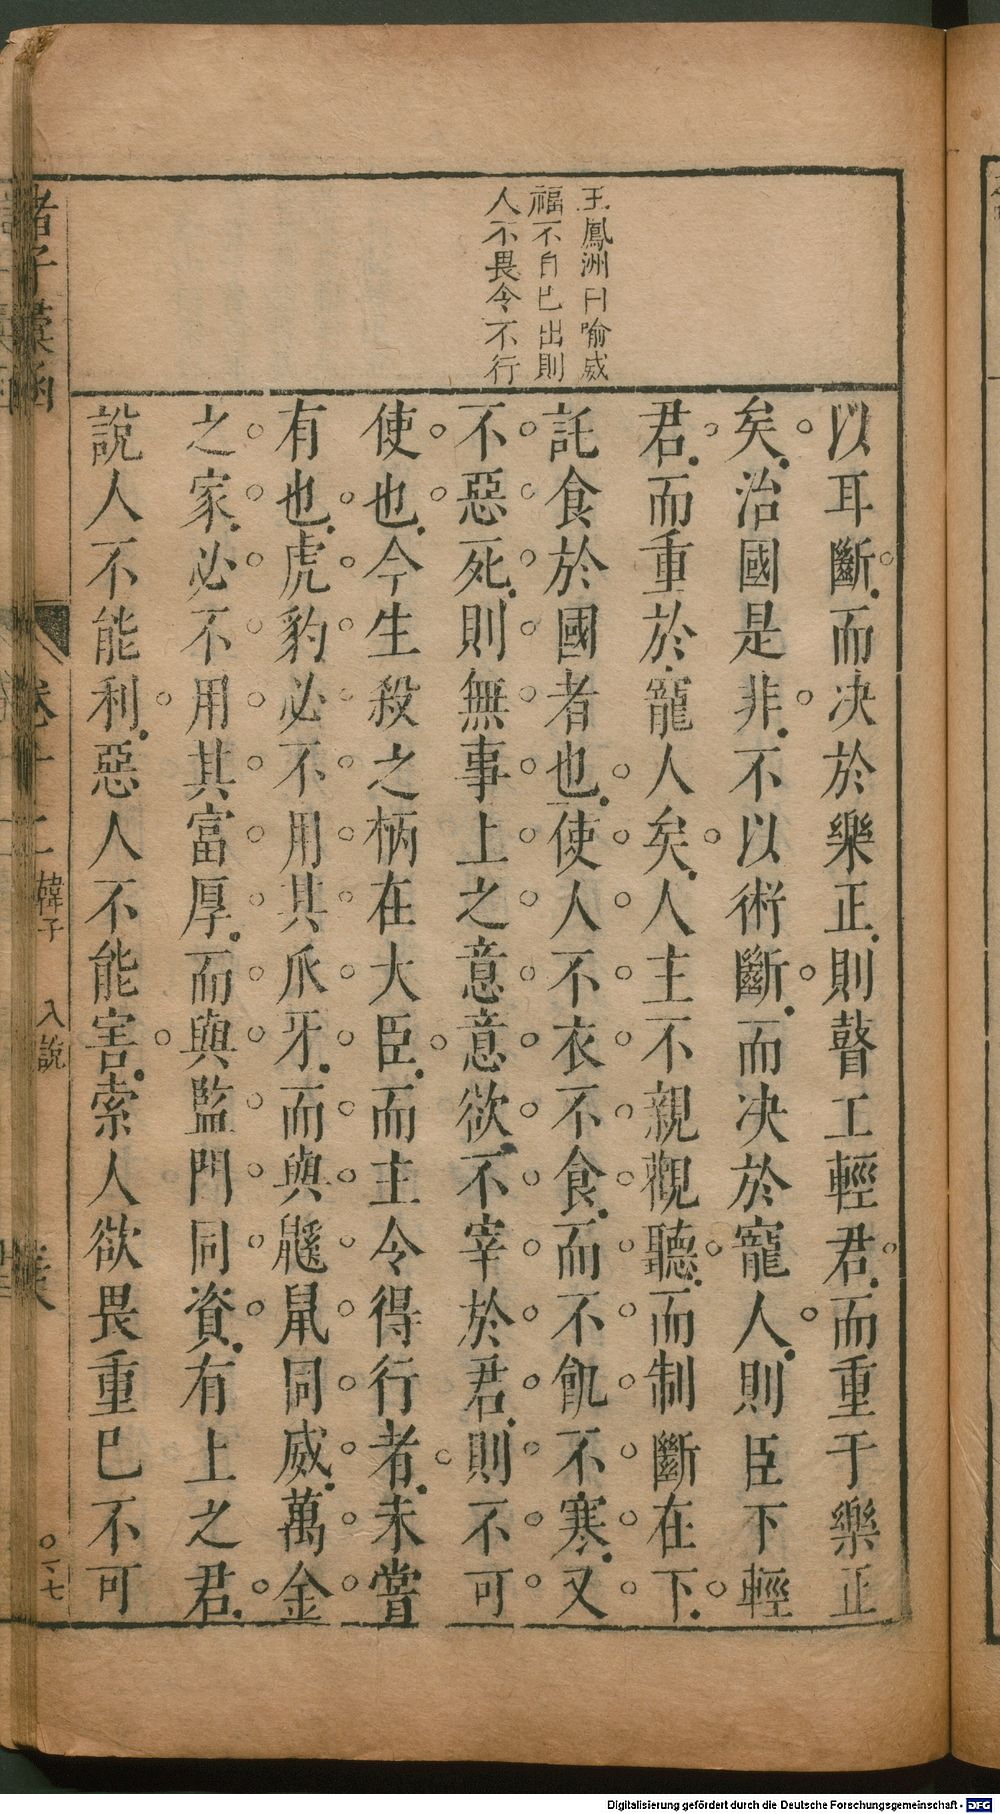 王鳳洲曰喻威
福不自已出則
人不畏令不行
以耳斷而决於樂正則瞽工輕君而重于樂正
矣治國是非不以術斷而决於寵人則臣下輕
君而重於寵人矣人主不親觀聽而制斷在下
託食於國者也使人不衣不食而不飢不寒又
不惡死則無事上之意意欲不宰於君則不可
使也今生殺之柄在大臣而主令得行者未嘗
有也虎豹必不用其爪牙而與鼷鼠同威萬金
之家必不用其富厚而與監門同資有上之君
說人不能利惡人不能害索人欲畏重已不可
諸子彙函
卷十二
韓子
八說
十七
Digitalisierung gefördert durch die Deutsche Forschungsgemeinschaft - DFG